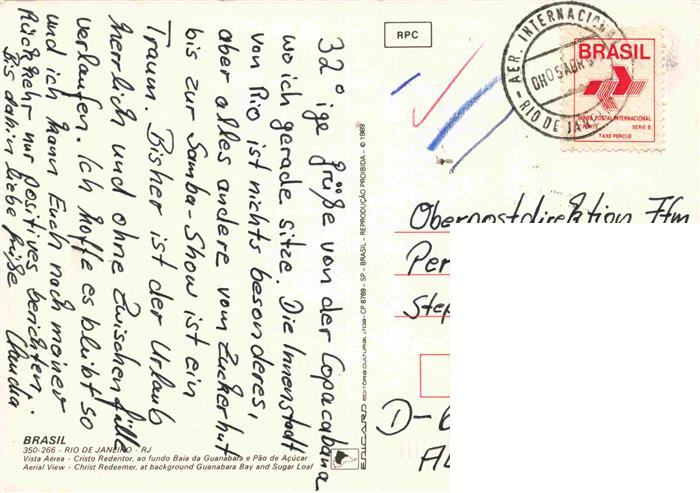 32° ige Grüße von der Copacabana
wo ich gerade sitze. Die Innenstadt
von Rio ist nichts besonderes,
aber alles andere vom Zuckerhut
bis zur Samba-Show ist ein
Traum. Bisher ist der Urlaub
herrlich und ohne Zwischenfälle
verlaufen. Ich hoffe es bleibt so
und ich kann Euch nach meiner
Rückkehr nur positives berichten.
Bis dahin liebe Grüße Claudia
BRASIL
350-266 - RIO DE JANEIRO - RJ
Vista Aérea - Cristo Redentor, ao fundo Baia da Guanabara e Pão de Açúcar
Aerial View - Christ Redeemer, at background Guanabara Bay and Sugar Loaf
EDITORA CULTURAL Ltda - CP 8769 - SP - BRASIL - REPRODUÇÃO PROIBIDA - © 1986
RPC
AER. INTERNACIONAL
RIO DE JAN
BRASIL
TARIFA POSTAL INTERNACIONAL
SERIE B
TAXE PERÇUE
Oberpostdirektion Ffm
Per
Step
D-6